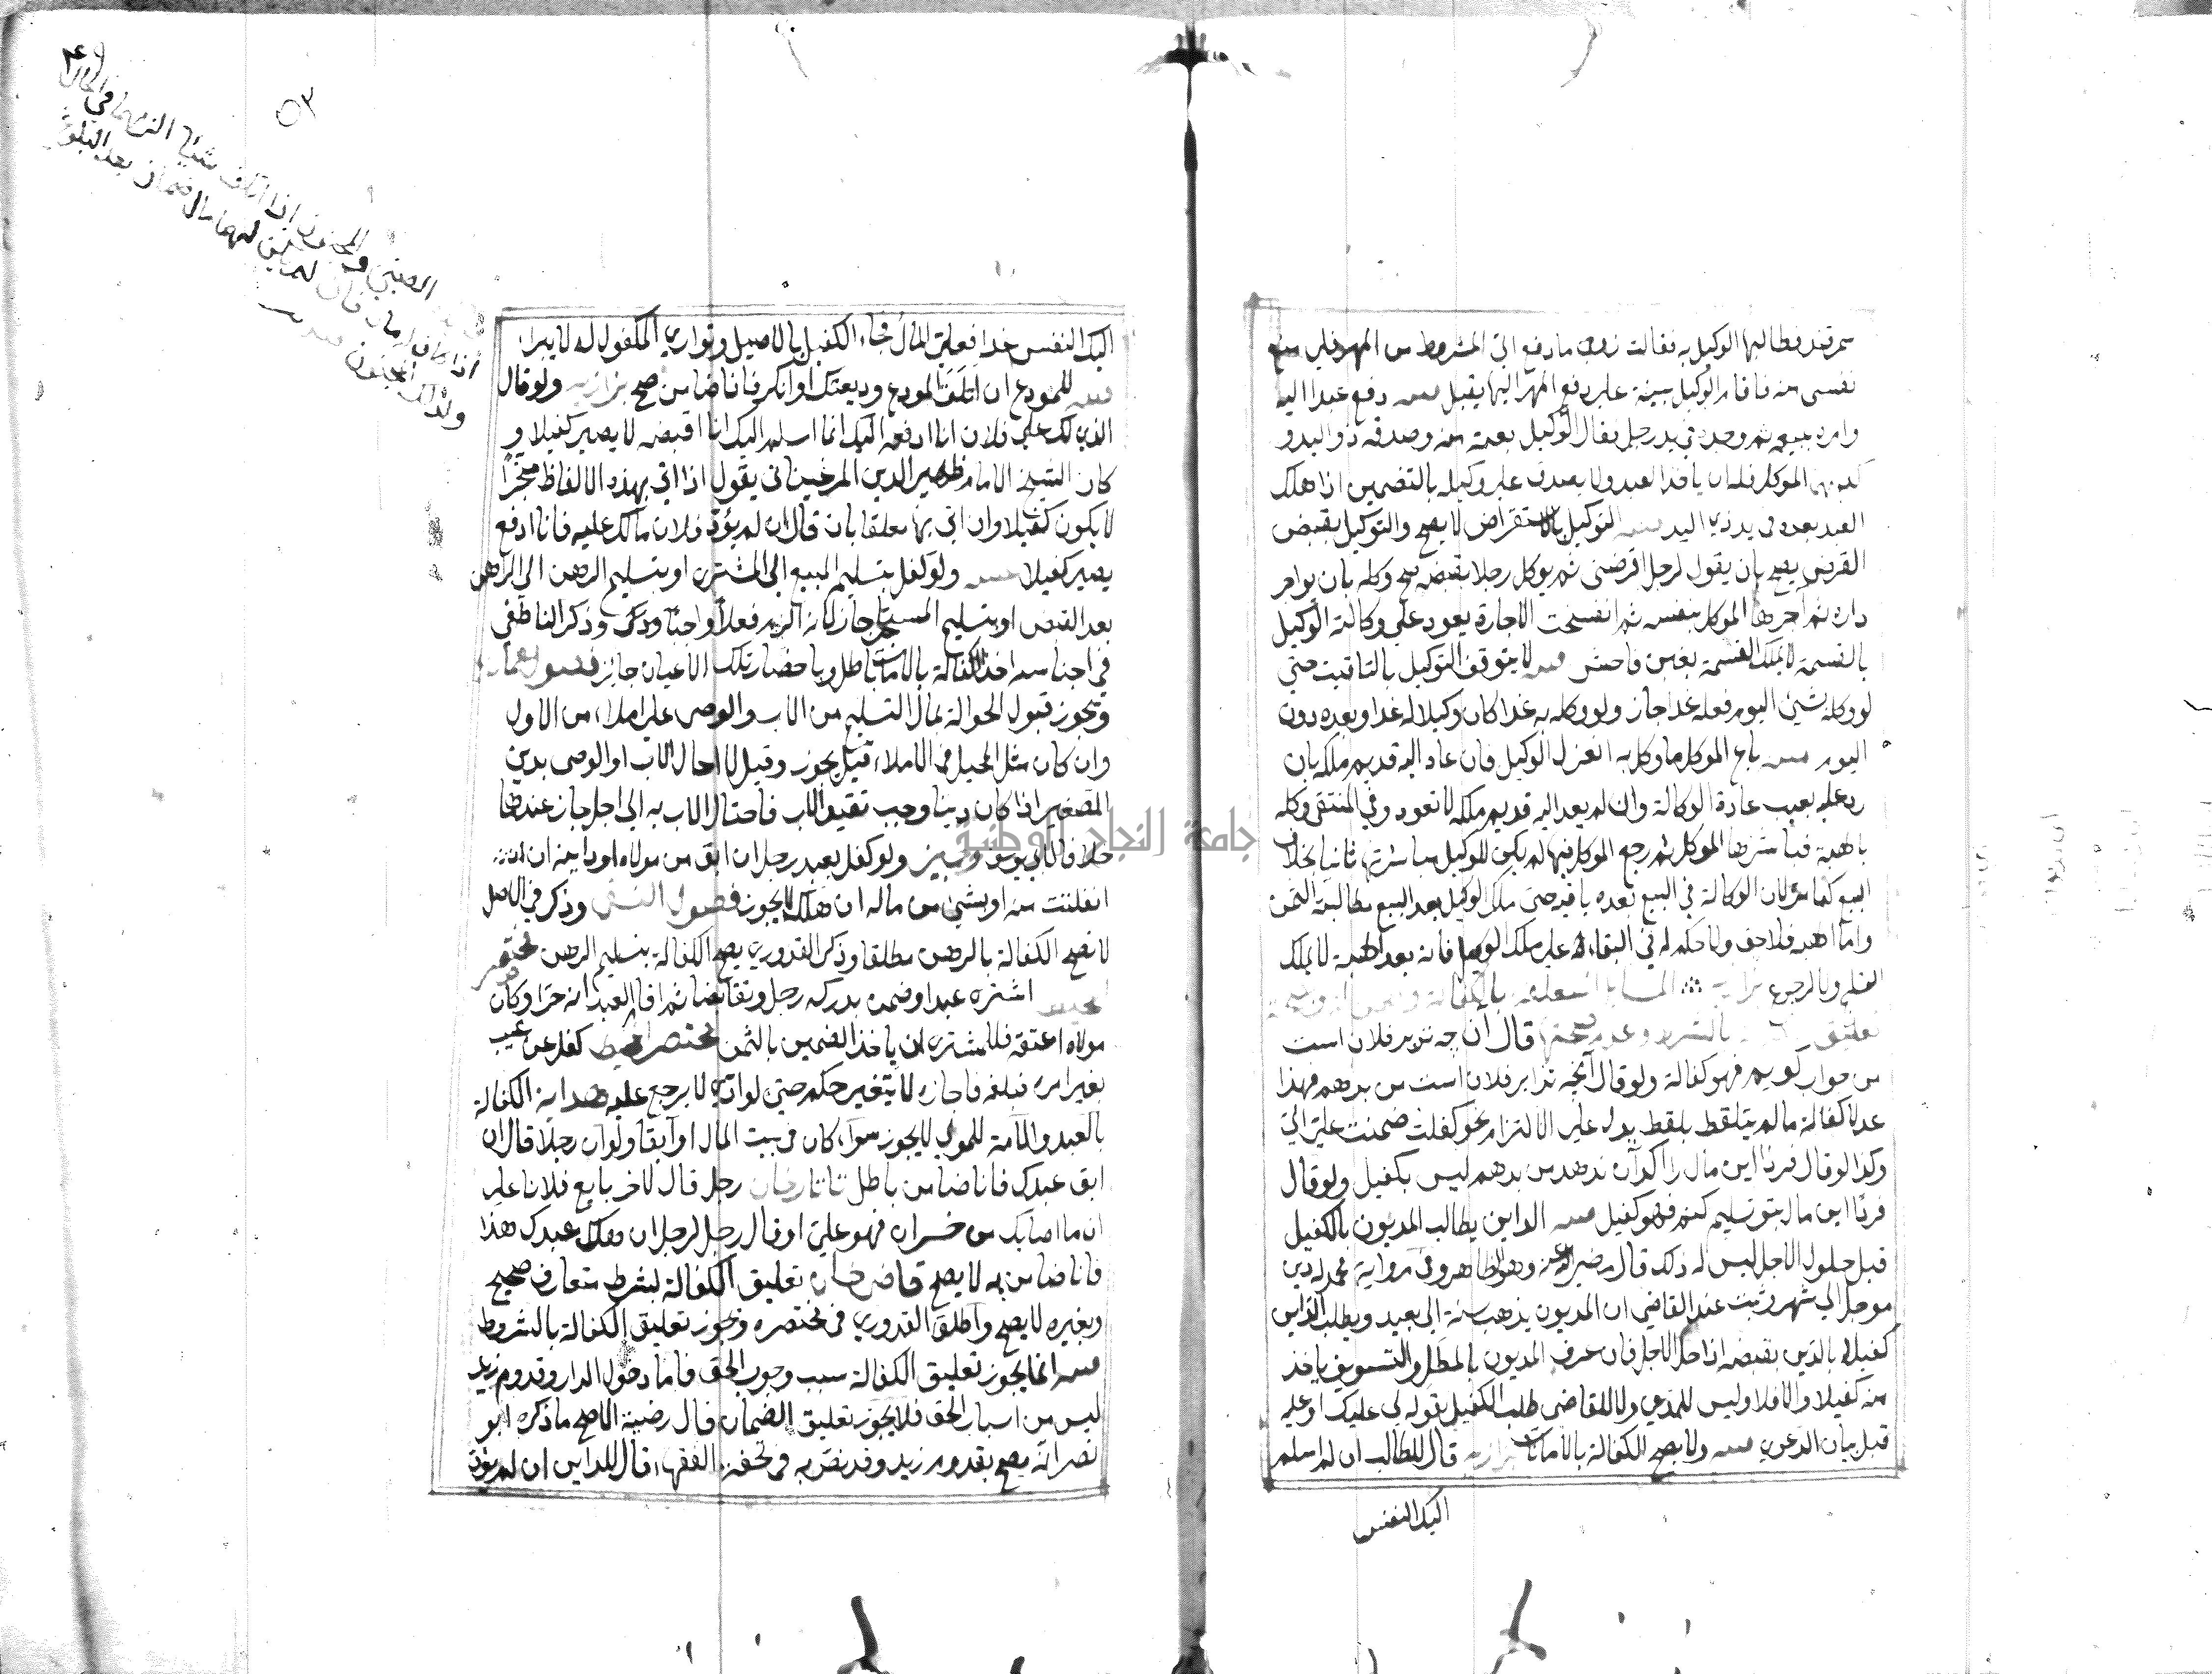 سمرقند وطالبها الوكيل به فقالت زوجي ما دفع الي المشروط من المهر فلي منع
نفسي منه فاقام الوكيل بينة على دفع المهر اليها يقبل منه دفع عبدا اليه
وامره ببيعه ثم وجده في يد رجل فقال الوكيل بعته منه وصدقه ذو اليد و
كذبهما الموكل فله ان ياخذ العبد ولا يصدق على وكيله بالتضمين اذا هلك
العبد بعده في يد ذي اليد التوكيل بالاستقراض لا يصح والتوكيل بقبض
القرض يصح بان يقول لرجل اقرضني ثم يوكل رجلا بقبضه صح وكله بان يواجر
داره ثم آجرها الموكل بنفسه ثم انفسخت الاجارة يعود على وكالته الوكيل
بالقسمة لا يملك القسمة بغبن فاحش لا يتوقف التوكيل بالتاقيت حتى
لو وكله بشئ اليوم ففعله غدا جاز ولو وكله به غدا كان وكيلا له غدا وبعده دون
اليوم باع الموكل ما وكل به انعزل الوكيل فان عاد اليه قديم ملكه بان
رد عليه بعيب عادة الوكالة وان لم يعد اليه قديم ملكه لا تعود وفي المنتقى وكله
بالهبة فباشرها الموكل ثم رجع الموكل فيها لم يكن للوكيل مباشرتها ثانيا بخلاف
البيع كما مر لان الوكالة في البيع بعده باقية حتى ملك الوكيل بعد البيع مطالبة الثمن
واما الهبة فلا حق ولا حكم له في البقاء على ملك الوكيل فانه بعد الهبة لا يملك
بزازية المسائل المتعلقة بالكفالة
تعليق بالشرط وعدم صحتها قال آن جه تو بر فلان است
من جواب كويم فهو كفالة ولو قال آنچه ترا بر فلان است من بدهم فهذا
عدلا كفالة ما لم يتلفظ بلفظ يدل على الالتزام نحو كفلت ضمنت علي الي
وكذا لو قال فردا اين مال را كر آن ندهد من بدهم ليس بكفيل ولو قال
فردا اين مال بتو تسليم كنم فهو كفيل الداين يطالب المديون بالكفيل
قبل حلول الاجل ليس له ذلك قال رضي الله عنه وهو الظاهر وفي رواية محمد له دين
موجل الى شهر وثبت عند القاضي ان المديون يذهب سنة الى بعيد ويطلب الداين
كفيلا بالدين بقبضه اذا حل الاجل فان عرف المديون بالمطل والتسويف ياخذ
منه كفيلا والا فلا وليس للمدعي ولا للقاضي طلب الكفيل بقوله لي عليك او عليه
قبل بيان الدعوى ولا يصح الكفالة بالامانات بزازية قال للطالب ان لم اسلم
اليك النفس
٤٩
٥٣
الصبي والمجنون اذا اتلف شيئا التزمهما في الحال
اذا كان له مال فان لم يكن لهما مال ضمان بعد البلوغ
وكذلك المجنون
اليك النفس غدا فعلي المال فجاء الكفيل بالاصيل وتوارى المكفول له لا يبرا
للمودع ان اتلف المودع وديعتك او انكر فانا ضامن صح بزازية ولو قال
الذي لك على فلان انا ادفعه اليك انا اسلم اليك انا اقبضه لا يصير كفيلا و
كان الشيخ الامام ظهير الدين المرغيناني يقول اذا اتى بهذه الالفاظ منجزا
لا يكون كفيلا وان اتى بها معلقا بان قال ان لم يؤد فلان مالك عليه فانا ادفع
يصير كفيلا ولو كفل بتسليم المبيع الى المشتري او بتسليم الرهن الى الراهن
بعد القبض او بتسليم المستاجر جاز لانه التزم فعلا واجبا وذكر وذكر الناطفي
في اجناسه اخذ الكفالة بالامانات باطل وباحضار تلك الاعيان جائز
ويجوز قبول الحوالة بمال التسليم من الاب والوصي على املاء من الاول
وان كان مثل المحيل في الاملاء قيل يجوز وقيل لا احال الاب او الوصي بدين
الصغير اذا كان دينا وجب بعقد الاب فاحتال الاب به الى اجل جاز عندهما
خلافا لابي يوسف ولو كفل بعبد رجل ان ابق من مولاه او دابة ان
انفلتت منه او بشئ من ماله ان هلك لا يجوز وذكر في الاصل
لا تصح الكفالة بالرهن مطلقا وذكر القدوري يصح الكفالة بتسليم الرهن مختصر
اشترى عبدا وضمن بدركه رجل وتقابضا ثم اقام العبد انه حر او كان
مولاه اعتقه فللمشتري ان ياخذ الضمين بالثمن مختصر محيط كفل عن غيب
بغير امره فبلغه فاجازه لا يتغير حكمه حتى لو ادى لا يرجع عليه هداية الكفالة
بالعبد والامة للمولى لا يجوز سواء كان في بيت المال او آبقا ولو ان رجلا قال ان
ابق عبدك فانا ضامن باطل تاتارخان رجل قال لاخر بايع فلانا على
ان ما اصابك من خسران فهو علي او قال رجل لرجل ان هلك عبدك هذا
فانا ضامن به لا يصح قاضي خان تعليق الكفالة بشرط متعارف صحيح
وبغيره لا يصح واطلق القدوري في مختصره ويجوز تعليق الكفالة بالشروط
انما يجوز تعليق الكفالة بسبب وجوب الحق فاما دخول الدار وقدوم زيد
ليس من اسباب الحق فلا يجوز تعليق الضمان قال رضي الاصح ما ذكره ابو
نصر انه يصح بقدوم زيد وقد نص به في تحفة الفقهاء قال للداين ان لم يؤد
جامعة النجاح الوطنية